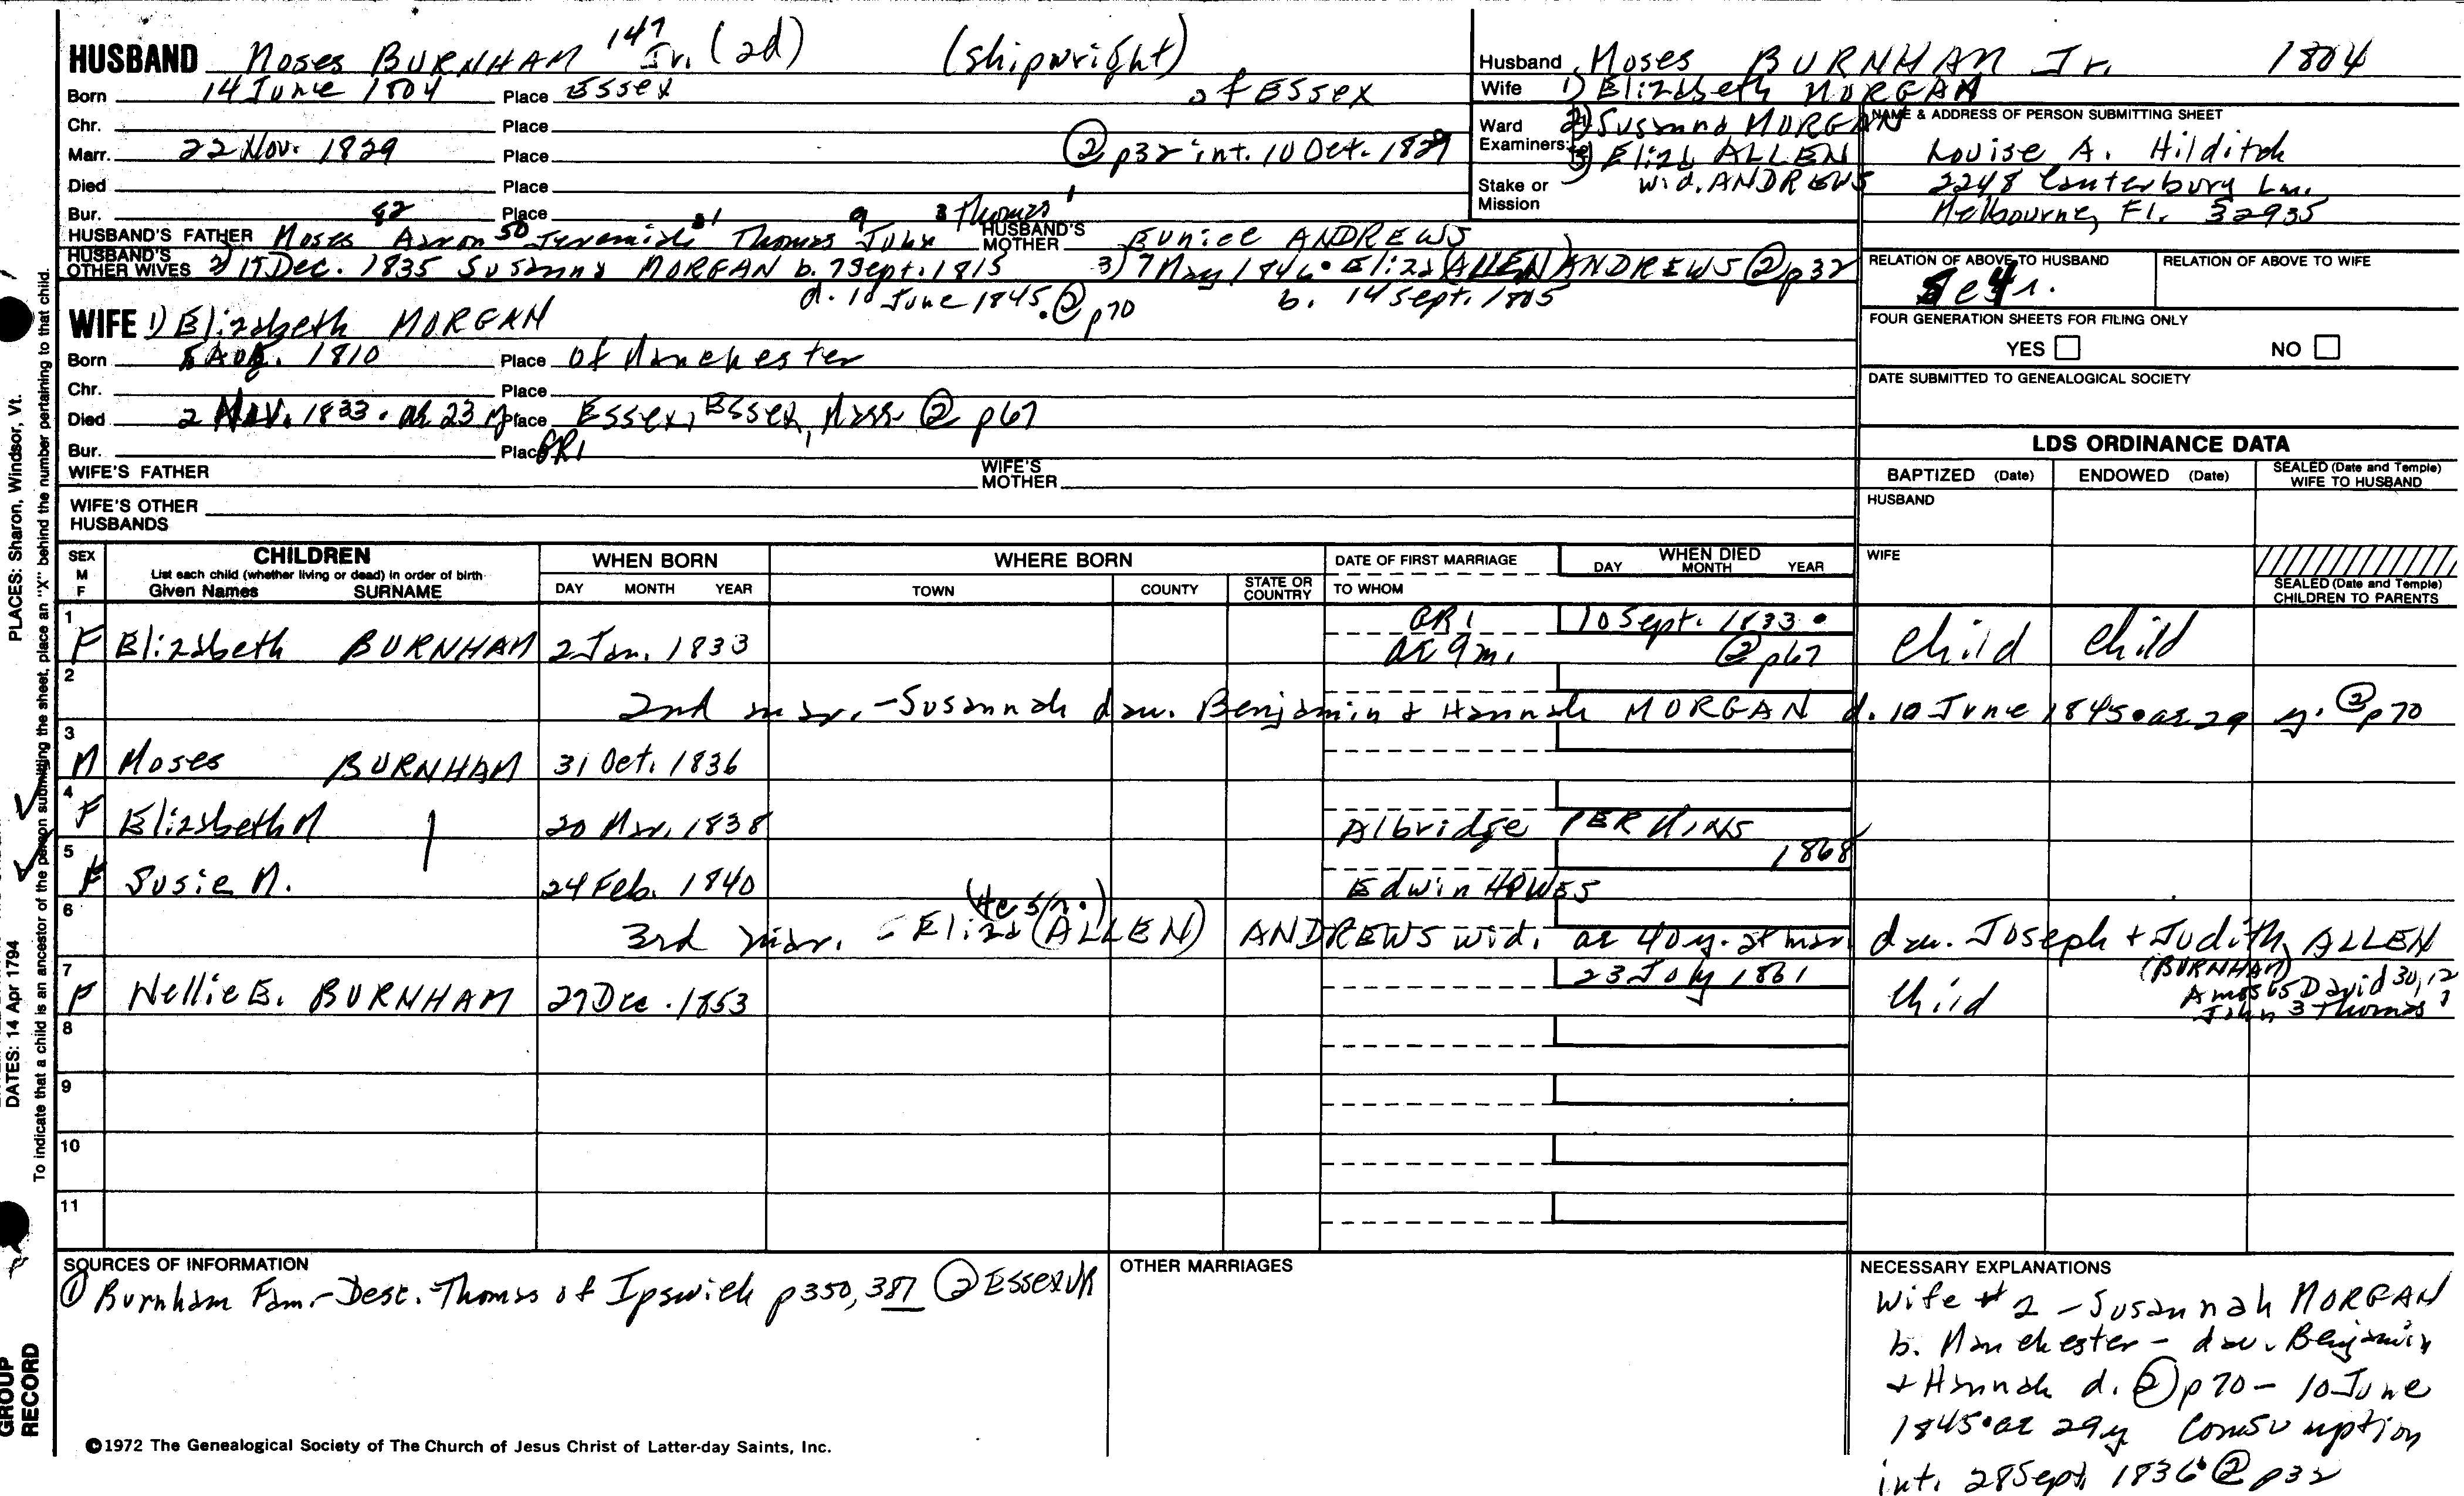 HUSBAND Moses BURNHAM 147 Jr. (2d) (shipwright)
Born 14 June 1804 Place Essex of Essex
Chr. Place
Marr. 22 Nov. 1829 Place ② p32 int. 10 Oct. 1829
Died Place
Bur. Place
HUSBAND'S FATHER Moses 92 Aaron 50 Jeremiah 21 Thomas 9 John 3 Thomas 1 HUSBAND'S MOTHER Eunice ANDREWS
HUSBAND'S OTHER WIVES 2) 15 Dec. 1835 Susanna MORGAN b. 7 Sept. 1815 3) 7 May 1846. Eliza (ALLEN) ANDREWS ② p32
d. 10 June 1845. ② p70 b. 14 Sept. 1805
WIFE 1) Elizabeth MORGAN
Born 5 Aug. 1810 Place of Manchester
Chr. Place
Died 2 Nov. 1833. ae 23 y Place Essex, Essex, Mass. ② p67
Bur. Place GR1
WIFE'S FATHER WIFE'S MOTHER
WIFE'S OTHER HUSBANDS
Husband Moses BURNHAM Jr. 1804
Wife 1) Elizabeth MORGAN
Ward 2) Susanna MORGAN
Examiners: 3) Eliza ALLEN
Stake or Mission wid. ANDREWS
NAME & ADDRESS OF PERSON SUBMITTING SHEET
Louise A. Hilditch
2248 Canterbury Ln.
Melbourne, Fl. 32935
RELATION OF ABOVE TO HUSBAND RELATION OF ABOVE TO WIFE
FOUR GENERATION SHEETS FOR FILING ONLY
YES NO
DATE SUBMITTED TO GENEALOGICAL SOCIETY
LDS ORDINANCE DATA
BAPTIZED (Date) ENDOWED (Date) SEALED (Date and Temple) WIFE TO HUSBAND
HUSBAND
WIFE
SEALED (Date and Temple) CHILDREN TO PARENTS
SEX M F CHILDREN WHEN BORN WHERE BORN DATE OF FIRST MARRIAGE WHEN DIED
List each child (whether living or dead) in order of birth
Given Names SURNAME DAY MONTH YEAR TOWN COUNTY STATE OR COUNTRY TO WHOM DAY MONTH YEAR
1 F Elizabeth BURNHAM 2 Jan. 1833 GR1 ae 9 m. 10 Sept. 1833. ② p67 Child Child
2 2nd mar. - Susannah dau. Benjamin + Hannah MORGAN d. 10 June 1845. ae 29 y. ② p70
3 M Moses BURNHAM 31 Oct. 1836
4 F Elizabeth M 20 Mar. 1838 Albridge PERKINS
5 F Susie M. 24 Feb. 1840 1868 Edwin HOWES
6 3rd mar. - Eliza (Hesr.) (ALLEN) ANDREWS wid. ae 40 y. at mar. dau. Joseph + Judith ALLEN
(BURNHAM)
Amos 65 David 30, 12
John 3 Thomas 1
7 F Nellie E. BURNHAM 29 Dec. 1853 23 July 1861 Child
8
9
10
11
SOURCES OF INFORMATION
① Burnham Fam. - Desc. Thomas of Ipswich p350, 387 ② Essex VR
OTHER MARRIAGES
NECESSARY EXPLANATIONS
Wife # 2 - Susannah MORGAN
b. Manchester - dau. Benjamin
+ Hannah d. ② p70 - 10 June
1845. ae 29 y Consumption
int. 28 Sept. 1836. ② p32
©1972 The Genealogical Society of The Church of Jesus Christ of Latter-day Saints, Inc.
PLACES: Sharon, Windsor, Vt.
DATES: 14 Apr 1794
To indicate that a child is an ancestor of the person submitting the sheet, place an "X" behind the number pertaining to that child.
GROUP RECORD